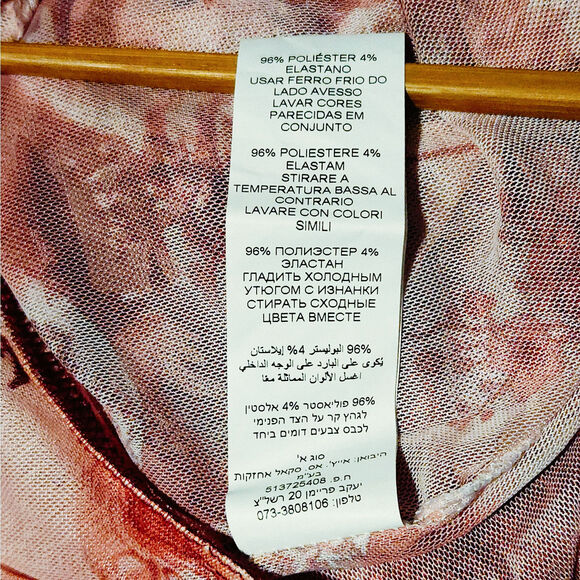 96% POLIÉSTER 4%
ELASTANO
USAR FERRO FRIO DO
LADO AVESSO
LAVAR CORES
PARECIDAS EM
CONJUNTO
96% POLIESTERE 4%
ELASTAM
STIRARE A
TEMPERATURA BASSA AL
CONTRARIO
LAVARE CON COLORI
SIMILI
96% ПОЛИЭСТЕР 4%
ЭЛАСТАН
ГЛАДИТЬ ХОЛОДНЫМ
УТЮГОМ С ИЗНАНКИ
СТИРАТЬ СХОДНЫЕ
ЦВЕТА ВМЕСТЕ
96% البوليستر 4% إيلاستان
يُكوى على البارد على الوجه الداخلي
اغسل الألوان المماثلة معًا
96% פוליאסטר 4% אלסטין
לגהץ קר על הצד הפנימי
לכבס צבעים דומים ביחד
סוג א'
היבואן: אייץ'. אס. סקאל אחזקות
בע"מ
ח.פ. 513725408
יעקב פריימן 20 רשל"צ
טלפון: 073-3808106